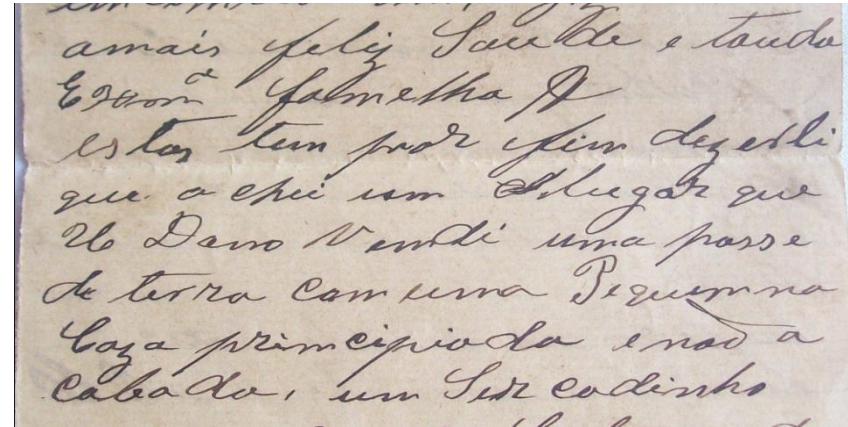 amais feliz Saude e touda
Exam.a famelha A
estas tem por fim dezerli
que achei um lugar que
o Dano Vendi uma posse
de terra com uma Piquenna
Caza principiada e naõ a
cabada, um Sercadinho